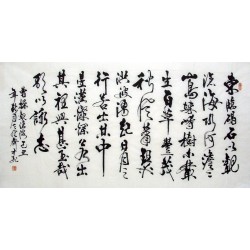 東臨碣石以觀
滄海水何澹澹
山島竦峙樹木叢
生百草豐茂
秋風蕭瑟
洪波湧起日月之
行若出其中
星漢燦爛若出
其裡幸甚至哉
歌以詠志